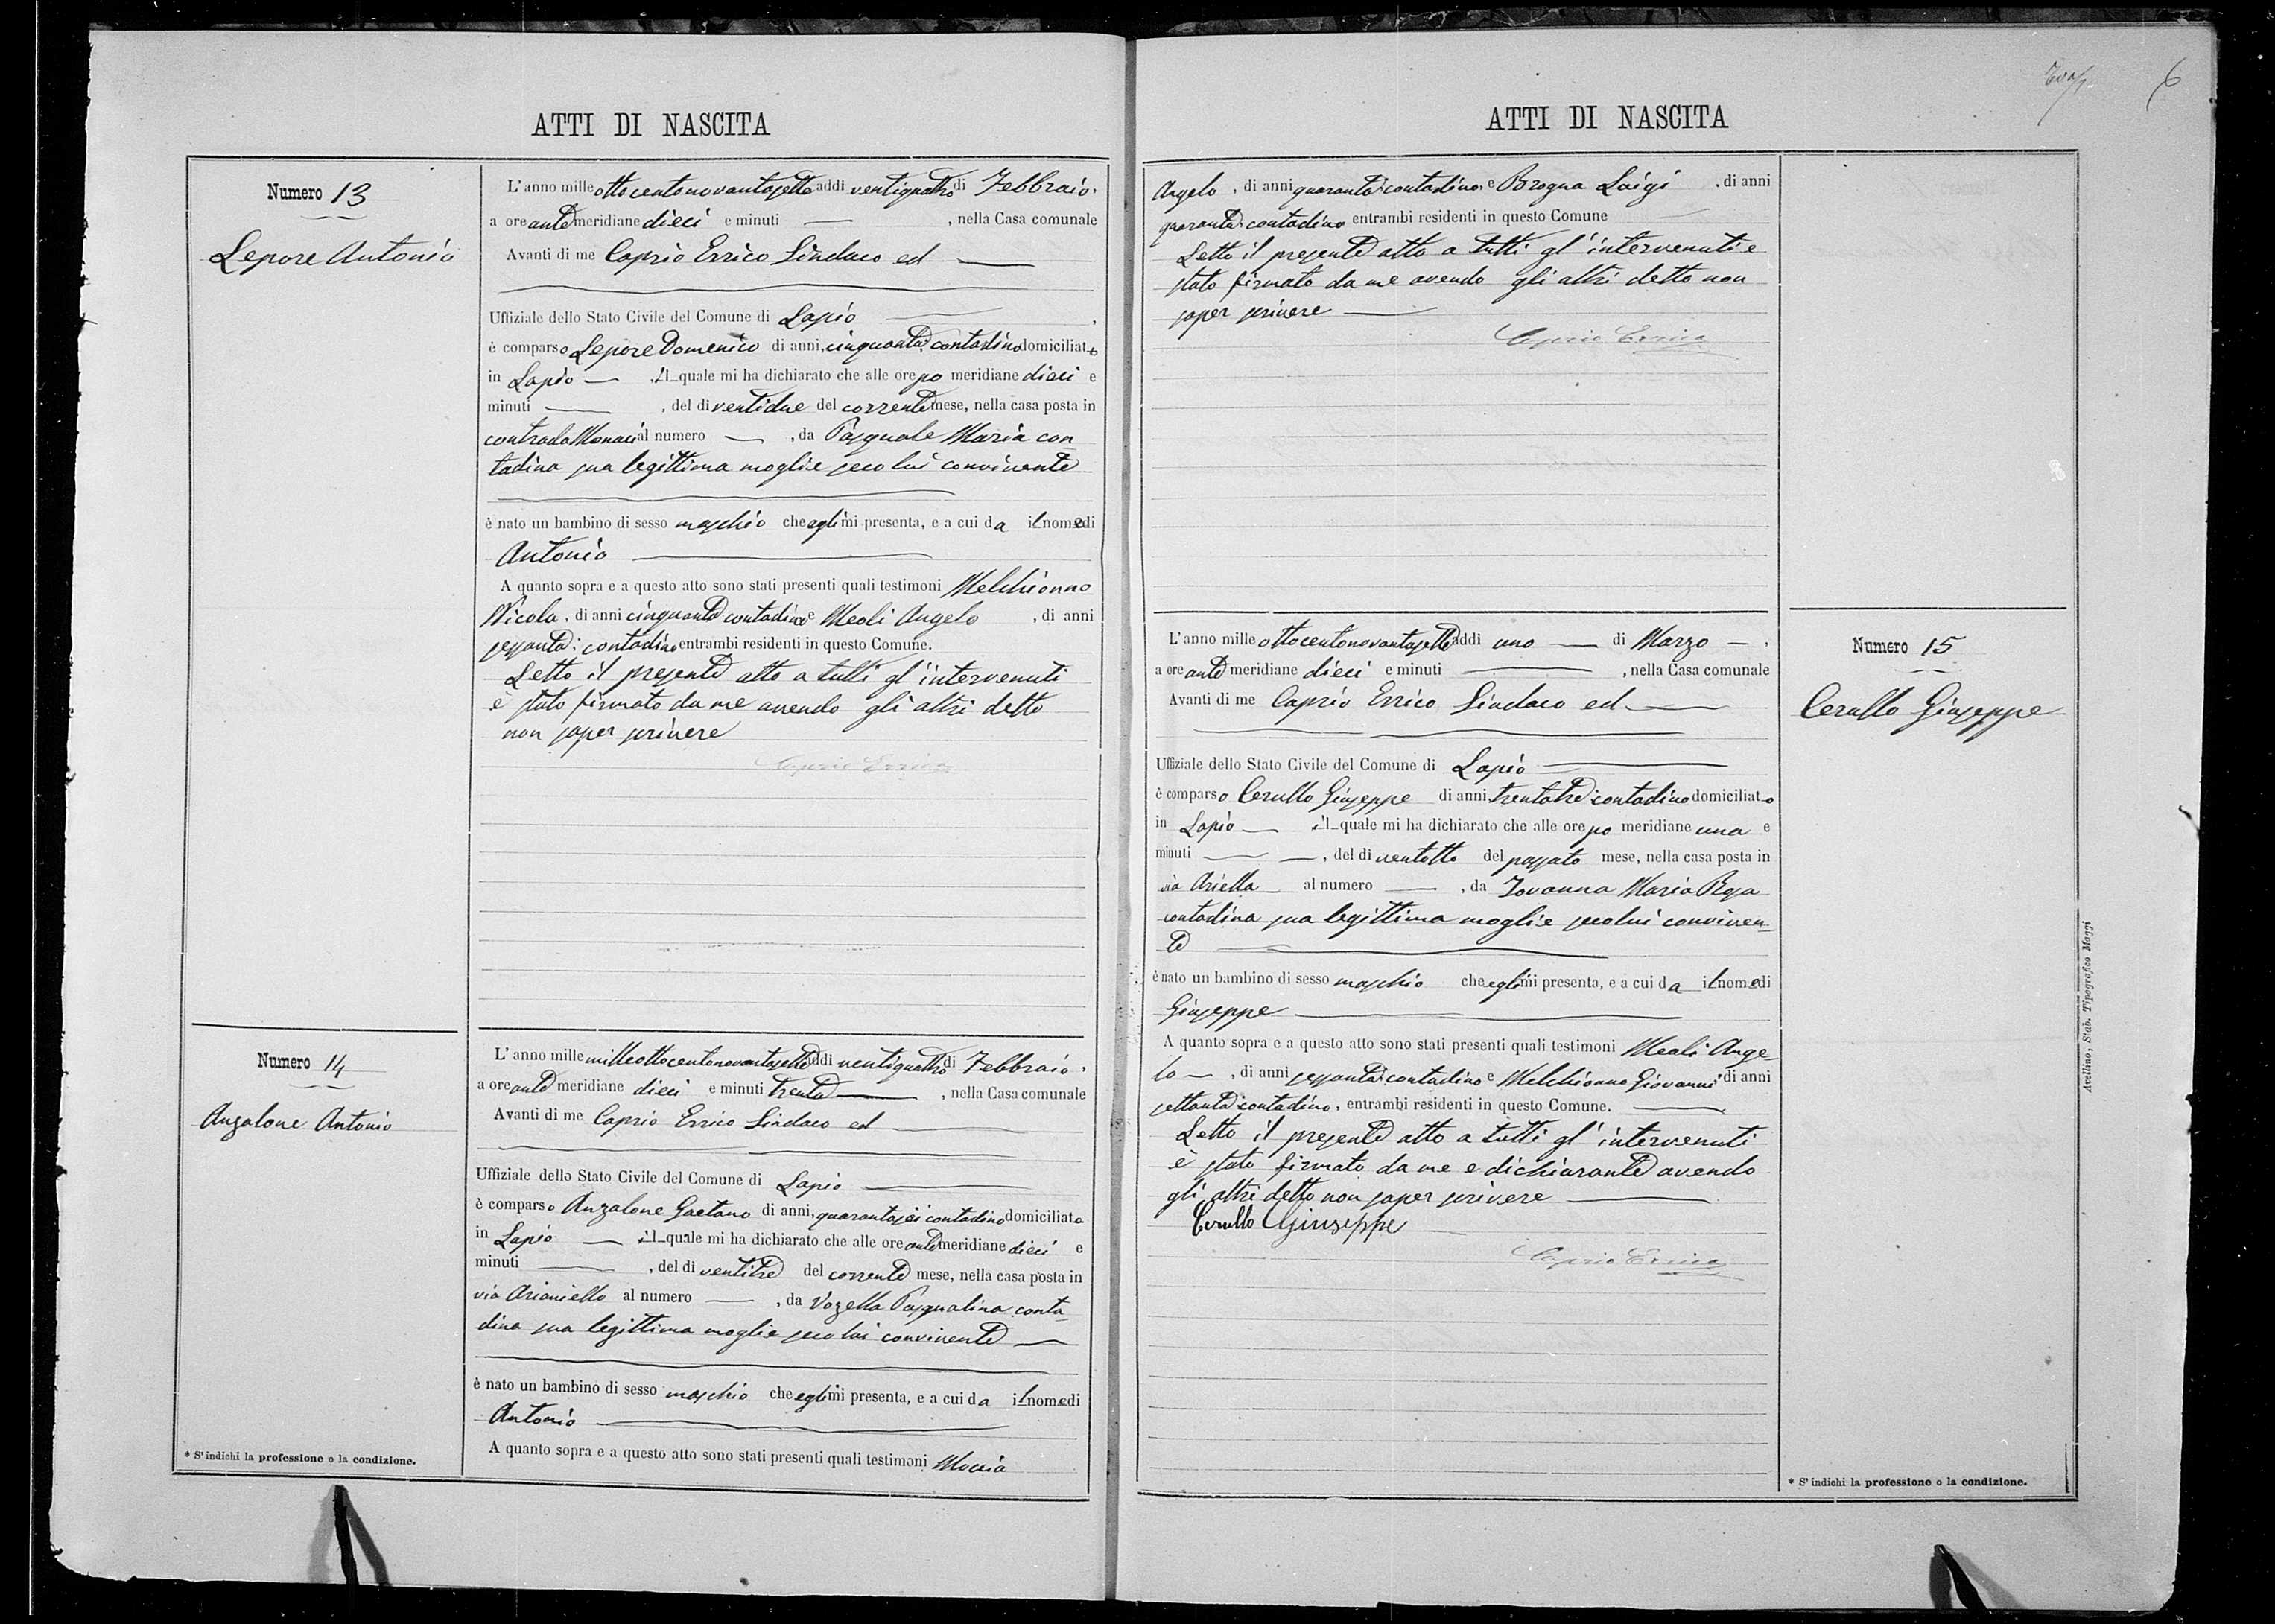 ATTI DI NASCITA
Numero 13
Lepore Antonio
L'anno mille ottocentonovantasette addi ventiquattro di Febbraio,
a ore ante meridiane dieci e minuti — , nella Casa comunale
Avanti di me Caprio Errico Sindaco ed —
Uffiziale dello Stato Civile del Comune di Lapio — ,
è comparso Lepore Domenico di anni, cinquanta contadino domiciliato
in Lapio — , il quale mi ha dichiarato che alle ore po meridiane dieci e
minuti — , del di ventidue del corrente mese, nella casa posta in
contrada Monaci al numero — , da Pasquale Maria con
tadina sua legittima moglie seco lui convivente
è nato un bambino di sesso maschio che egli mi presenta, e a cui da il nome di
Antonio —
A quanto sopra e a questo atto sono stati presenti quali testimoni Melchionno
Nicola, di anni cinquanta contadino e Meoli Angelo , di anni
sessanta: contadino entrambi residenti in questo Comune.
Letto il presente atto a tutti gl'intervenuti
è stato firmato da me avendo gli altri detto
non saper scrivere
Caprio Errico
Numero 14
Anzalone Antonio
L'anno mille milleottocentonovantasette addi ventiquattro di Febbraio,
a ore ante meridiane dieci e minuti trenta — , nella Casa comunale
Avanti di me Caprio Errico Sindaco ed —
Uffiziale dello Stato Civile del Comune di Lapio —
è comparso Anzalone Gaetano di anni, quarantasei contadino domiciliato
in Lapio — il quale mi ha dichiarato che alle ore ante meridiane dieci e
minuti — , del di ventitre del corrente mese, nella casa posta in
via Arianiello al numero — , da Vozella Pasqualina conta-
dina sua legittima moglie seco lui convivente —
è nato un bambino di sesso maschio che egli mi presenta, e a cui da il nome di
Antonio —
A quanto sopra e a questo atto sono stati presenti quali testimoni Moccia
* S'indichi la professione o la condizione.
6
ATTI DI NASCITA
Angelo , di anni quaranta contadino e Brogna Luigi , di anni
quaranta contadino entrambi residenti in questo Comune —
Letto il presente atto a tutti gl'intervenuti e
stato firmato da me avendo gli altri detto non
saper scrivere —
Caprio Errico
Numero 15
Cerullo Giuseppe
L'anno mille ottocentonovantasette addi uno — di Marzo — ,
a ore ante meridiane dieci e minuti — , nella Casa comunale
Avanti di me Caprio Errico Sindaco ed —
Uffiziale dello Stato Civile del Comune di Lapio —
è comparso Cerullo Giuseppe di anni, trentatre contadino domiciliato
in Lapio — il quale mi ha dichiarato che alle ore po meridiane una e
minuti — , del di ventotto del passato mese, nella casa posta in
via Ariella — al numero — , da Iovanna Maria Rosa
contadina sua legittima moglie seco lui conviven-
te —
è nato un bambino di sesso maschio che egli mi presenta, e a cui da il nome di
Giuseppe —
A quanto sopra e a questo atto sono stati presenti quali testimoni Meoli Ange-
lo — , di anni sessanta contadino e Melchionno Giovanni di anni
settanta contadino, entrambi residenti in questo Comune. —
Letto il presente atto a tutti gl'intervenuti
è stato firmato da me e dichiarante avendo
gli altri detto non saper scrivere —
Cerullo Giuseppe
Caprio Errico
* S'indichi la professione o la condizione.
Avellino, Stab. Tipografico Maggi